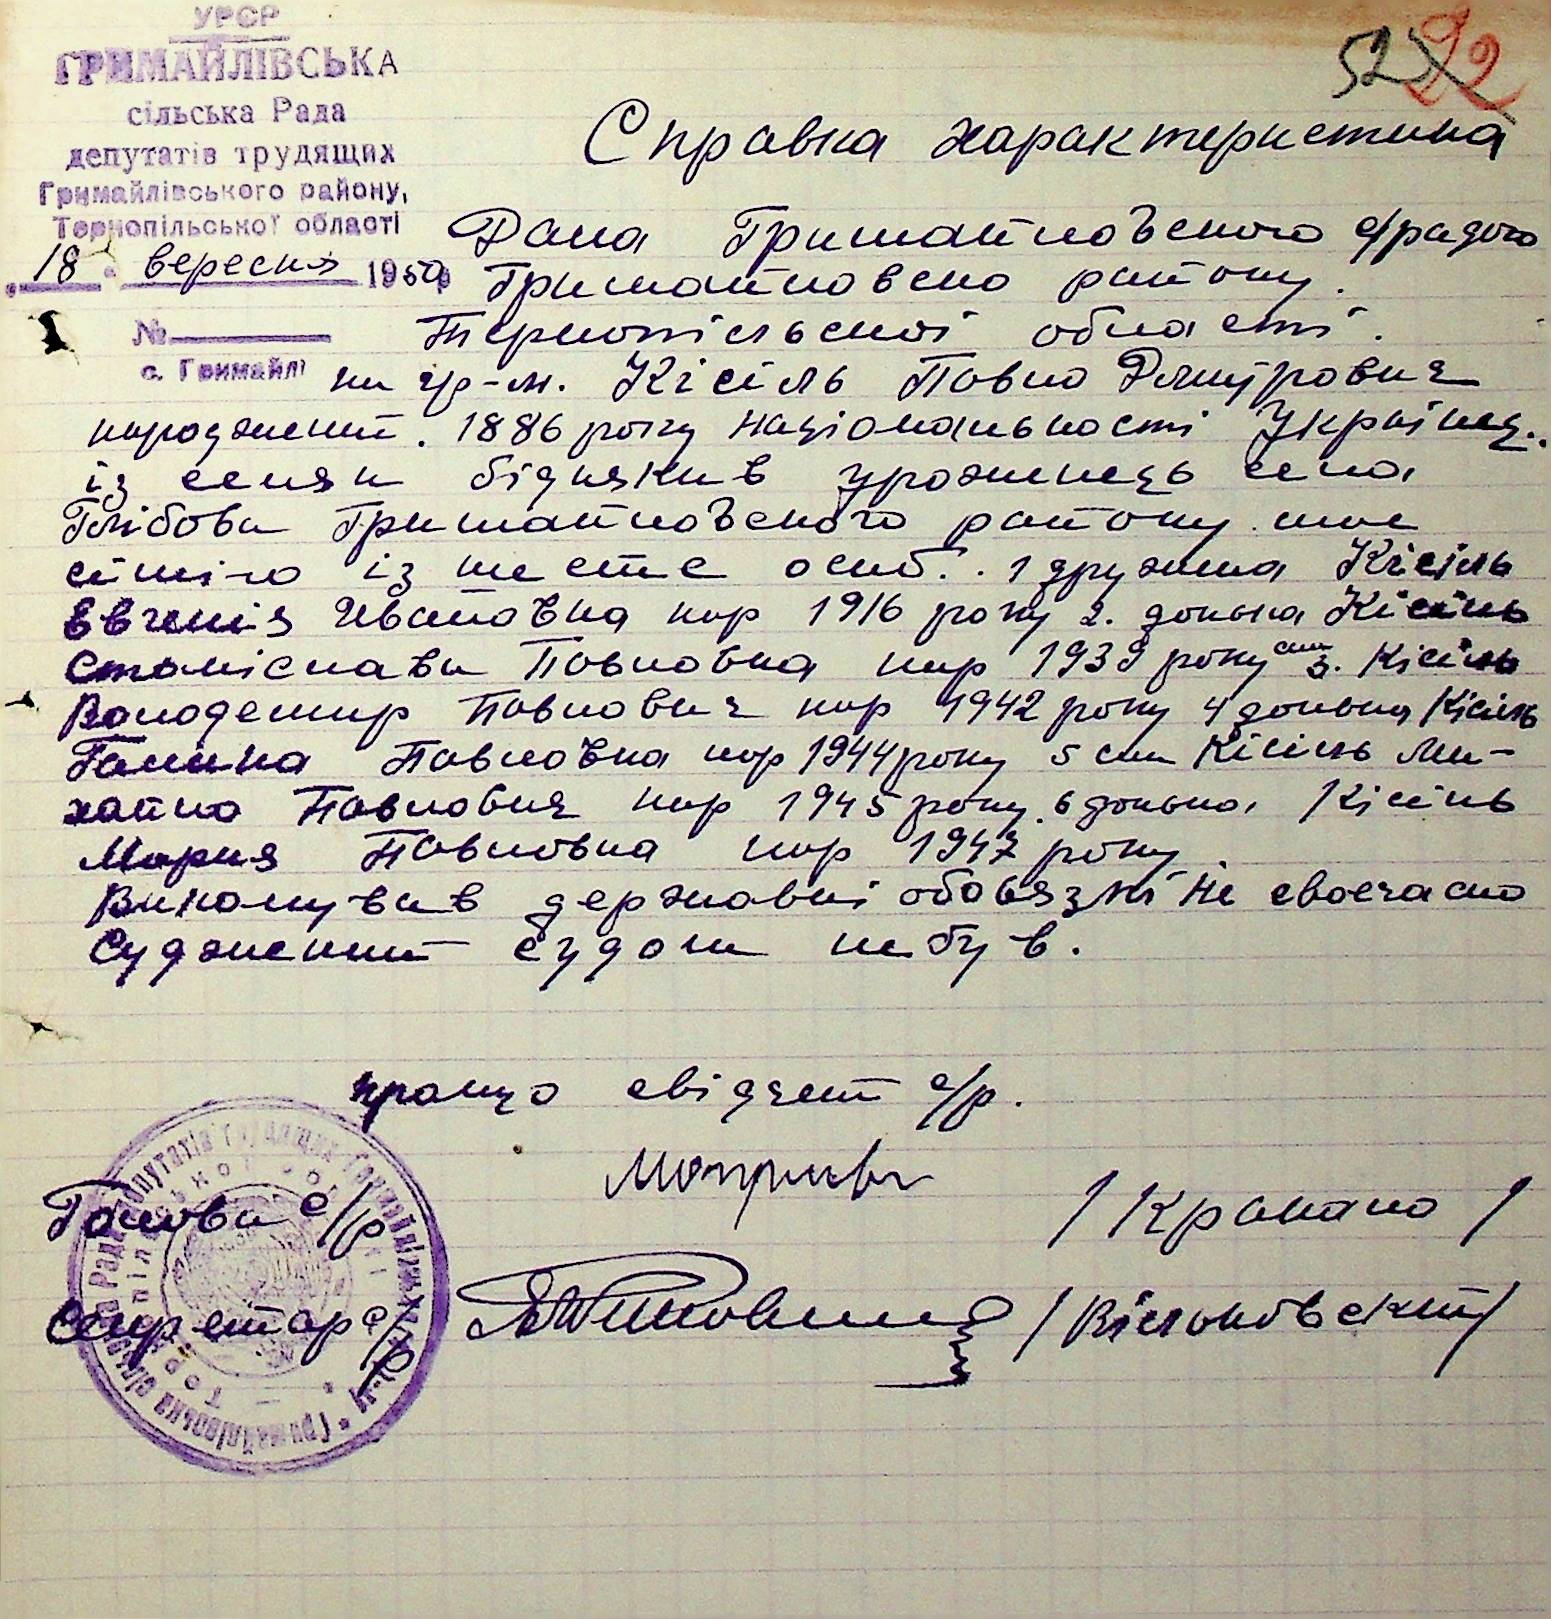 УРСР
ГРИМАЙЛІВСЬКА
сільська Рада
депутатів трудящих
Гримайлівського району,
Тернопільської області
18 вересня 1950
№
с. Гримайлі
52 22
Справка характеристика
Дана Гримайловского с/радого
Гримайловско району.
Тернопільскої області.
на гр-н. Кісіль Павло Дмитрович
народжений. 1886 року національності Українец..
із селян бідняків уроженець села
Глібови Гримайловского району має
сімію із шесте осиб.. 1 дружина Кісіль
Евгенія Ивановна нар 1916 року 2. донька Кісіль
Станіслава Павловна нар 1939 року син 3. Кісіль
Володемир Павлович нар 1942 року 4 донька Кісіль
Галина Павловна нар 1944 року 5 син Кісіль Ми-
хайло Павлович нар 1945 року. 6 донька Кісіль
Мария Павловна нар 1947 року.
Виконував державні обовязкі не своечасно
Судженний судом не був.
працю свідчет с/р.
Голова с/р /Кракало/
Секретар с/р /Вільковский/